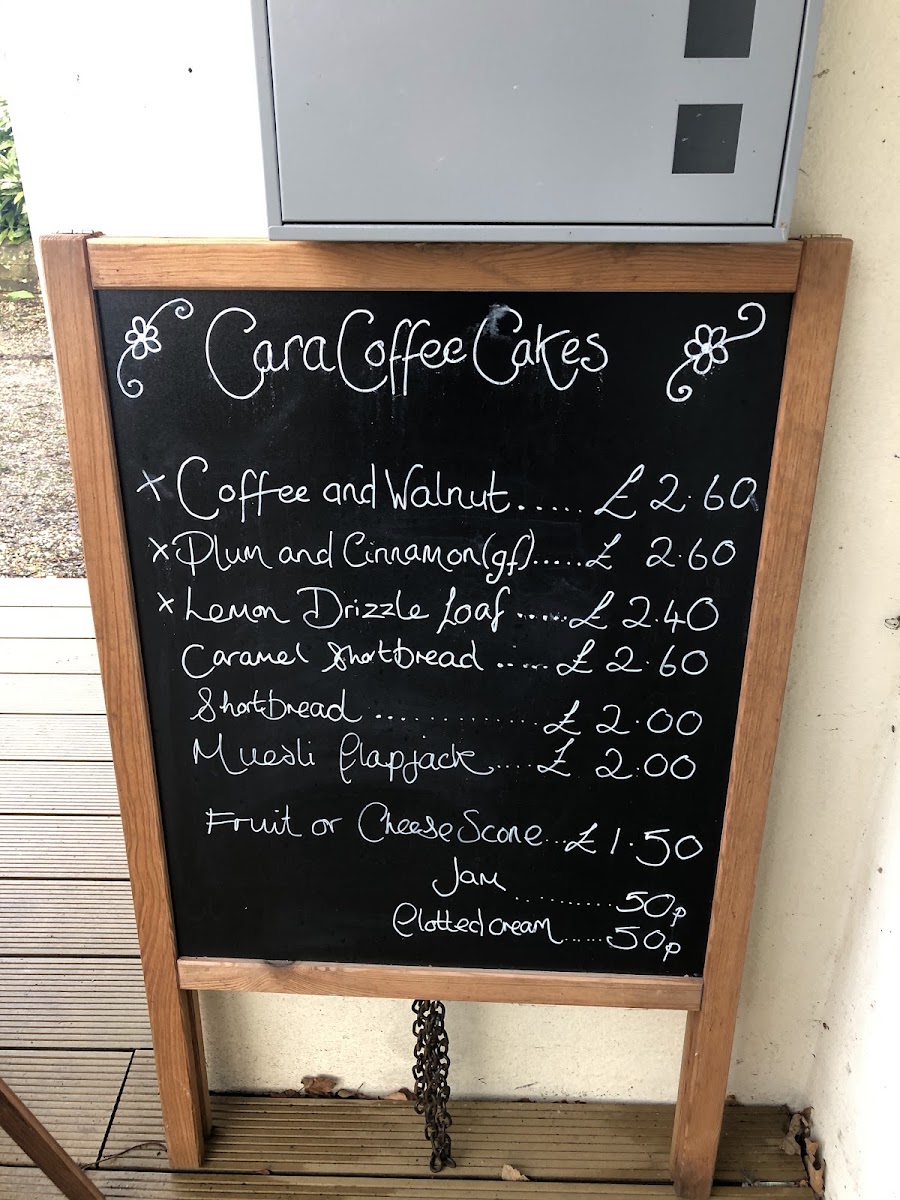 Cara Coffee Cakes
x Coffee and Walnut...... £2.60
x Plum and Cinnamon(gf)..... £ 2.60
x Lemon Drizzle Loaf ...... £2.40
Caramel Shortbread ...... £2.60
Shortbread ............... £2.00
Muesli Flapjack..... £ 2.00
Fruit or Cheese Scone...£1.50
Jam .......... 50p
Clotted cream ...... 50p